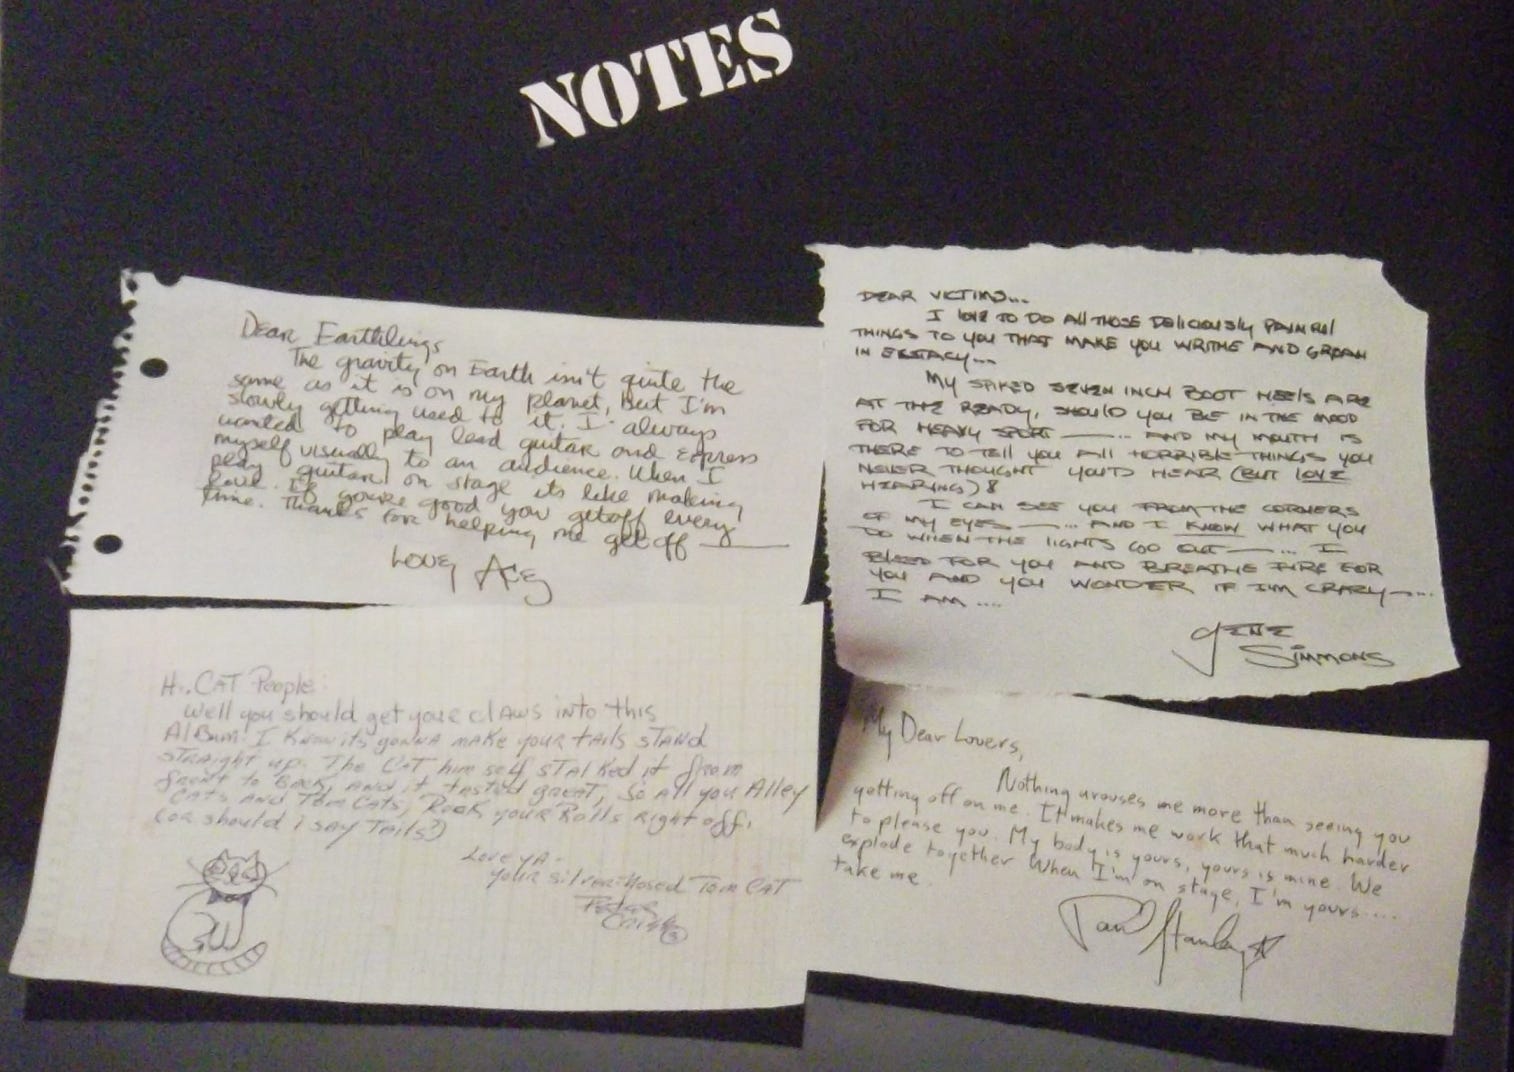 NOTES
Dear Earthlings
The gravity on Earth isn't quite the
same as it is on my planet, But I'm
slowly getting used to it. I always
wanted to play lead guitar and express
myself visually to an audience. When I
play guitar on stage its like making
love. If you're good you get off every
time. Thanks for helping me get off ____
Love, Ace
DEAR VICTIMS...
I LOVE TO DO ALL THOSE DELICIOUSLY PAINFUL
THINGS TO YOU THAT MAKE YOU WRITHE AND GROAN
IN ECSTACY...
MY SPIKED SEVEN INCH BOOT HEELS ARE
AT THE READY, SHOULD YOU BE IN THE MOOD
FOR HEAVY SPORT —... AND MY MOUTH IS
THERE TO TELL YOU ALL HORRIBLE THINGS YOU
NEVER THOUGHT YOU'D HEAR (BUT LOVE
HEARING)!
I CAN SEE YOU FROM THE CORNERS
OF MY EYES —... AND I KNOW WHAT YOU
DO WHEN THE LIGHTS GO OUT —... I
BLEED FOR YOU AND BREATHE FIRE FOR
YOU AND YOU WONDER IF I'M CRAZY —...
I AM ....
GENE
SIMMONS
Hi. CAT People:
Well you should get your clAws into this
AlBum. I Know its gonna make your tails STAND
STRAIGHT up. The CAT himself STAlked it from
front to BACK, AND it tasted great, So all you Alley
CATS AND Tom CATS, Rock your Rolls Right off,
(or should i say TAils?)
Love yA-
your silver-Nosed Tom CAT
Peter
Criss
My Dear Lovers,
Nothing arouses me more than seeing you
getting off on me. It makes me work that much harder
to please you. My body is yours, yours is mine. We
explode together When I'm on stage, I'm yours....
take me.
Paul Stanley